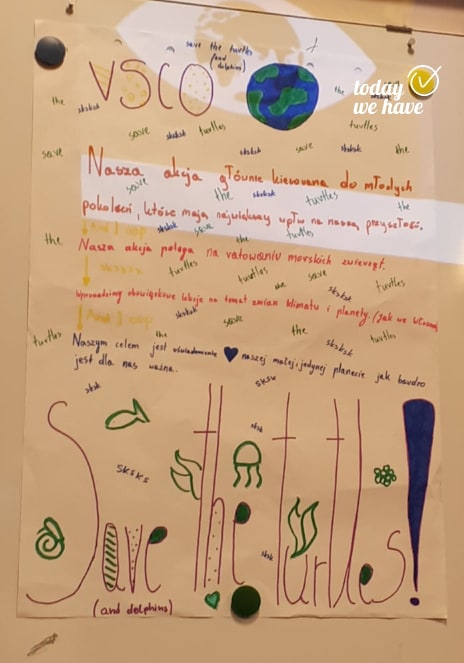 save the turtles
(and dolphins)
VSCO
today
we have
the sksksk the
save sksksk turtles turtles
save sksksk save sksksk the
Nasza akcja głównie kierowana do młodych
save the sksksk turtles the
pokoleń, które mają największy wpływ na naszą przyszłość.
And I oop sksksk save the turtles
the
Nasza akcja polega na ratowaniu morskich zwierząt.
sksksk turtles turtles the save turtles
sksksk
Wprowadzimy obowiązkowe lekcje na temat zmian klimatu i planety. (Jak we Włoszech
And I oop sksksk save the
turtles the sksksk turtles
Naszym celem jest uświadomienie naszej małej, jedynej planecie jak bardzo
jest dla nas ważna.
sksk sksk
sksk
sksks
Save the turtles!
sksk
(and dolphins)